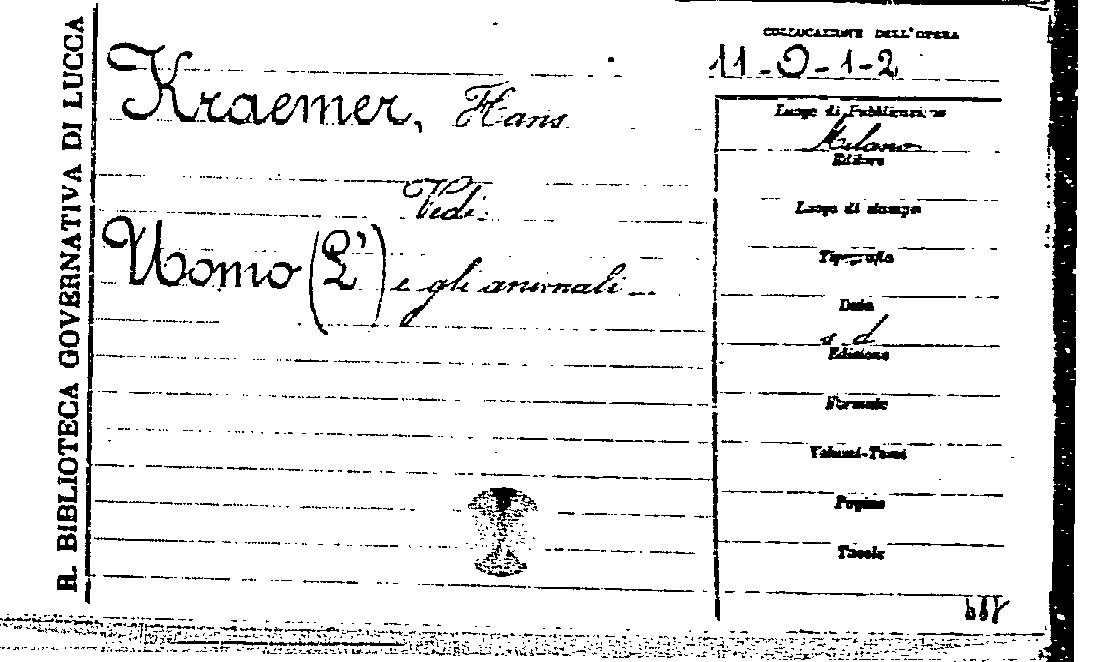 R. BIBLIOTECA GOVERNATIVA DI LUCCA
Kraemer, Hans
Vedi:
Uomo (L') e gli animali...
COLLOCAZIONE DELL'OPERA
11-O-1-2
Luogo di Pubblicazione
Milano
Editore
Luogo di stampa
Tipografia
Data
s d
Edizione
Formato
Volumi-Tomi
Pagine
Tavole